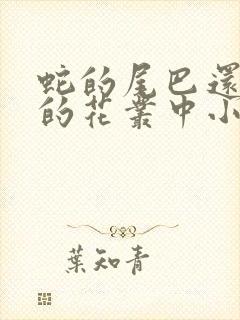 蛇的尾巴還
的花叢中小
葉知青